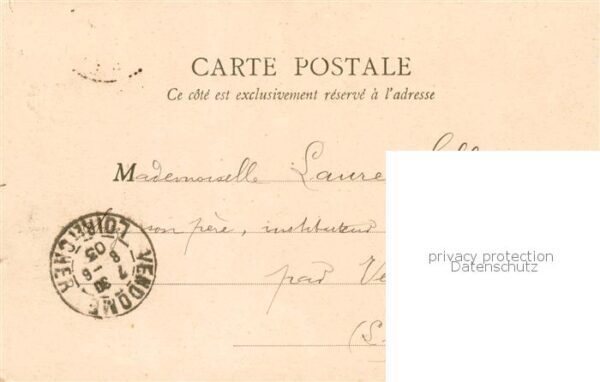 CARTE POSTALE
Ce côté est exclusivement réservé à l'adresse
Mademoiselle Laure
son père, instituteur
par Ve
(S.
VENDOME LOIR ET CHER
privacy protection
Datenschutz